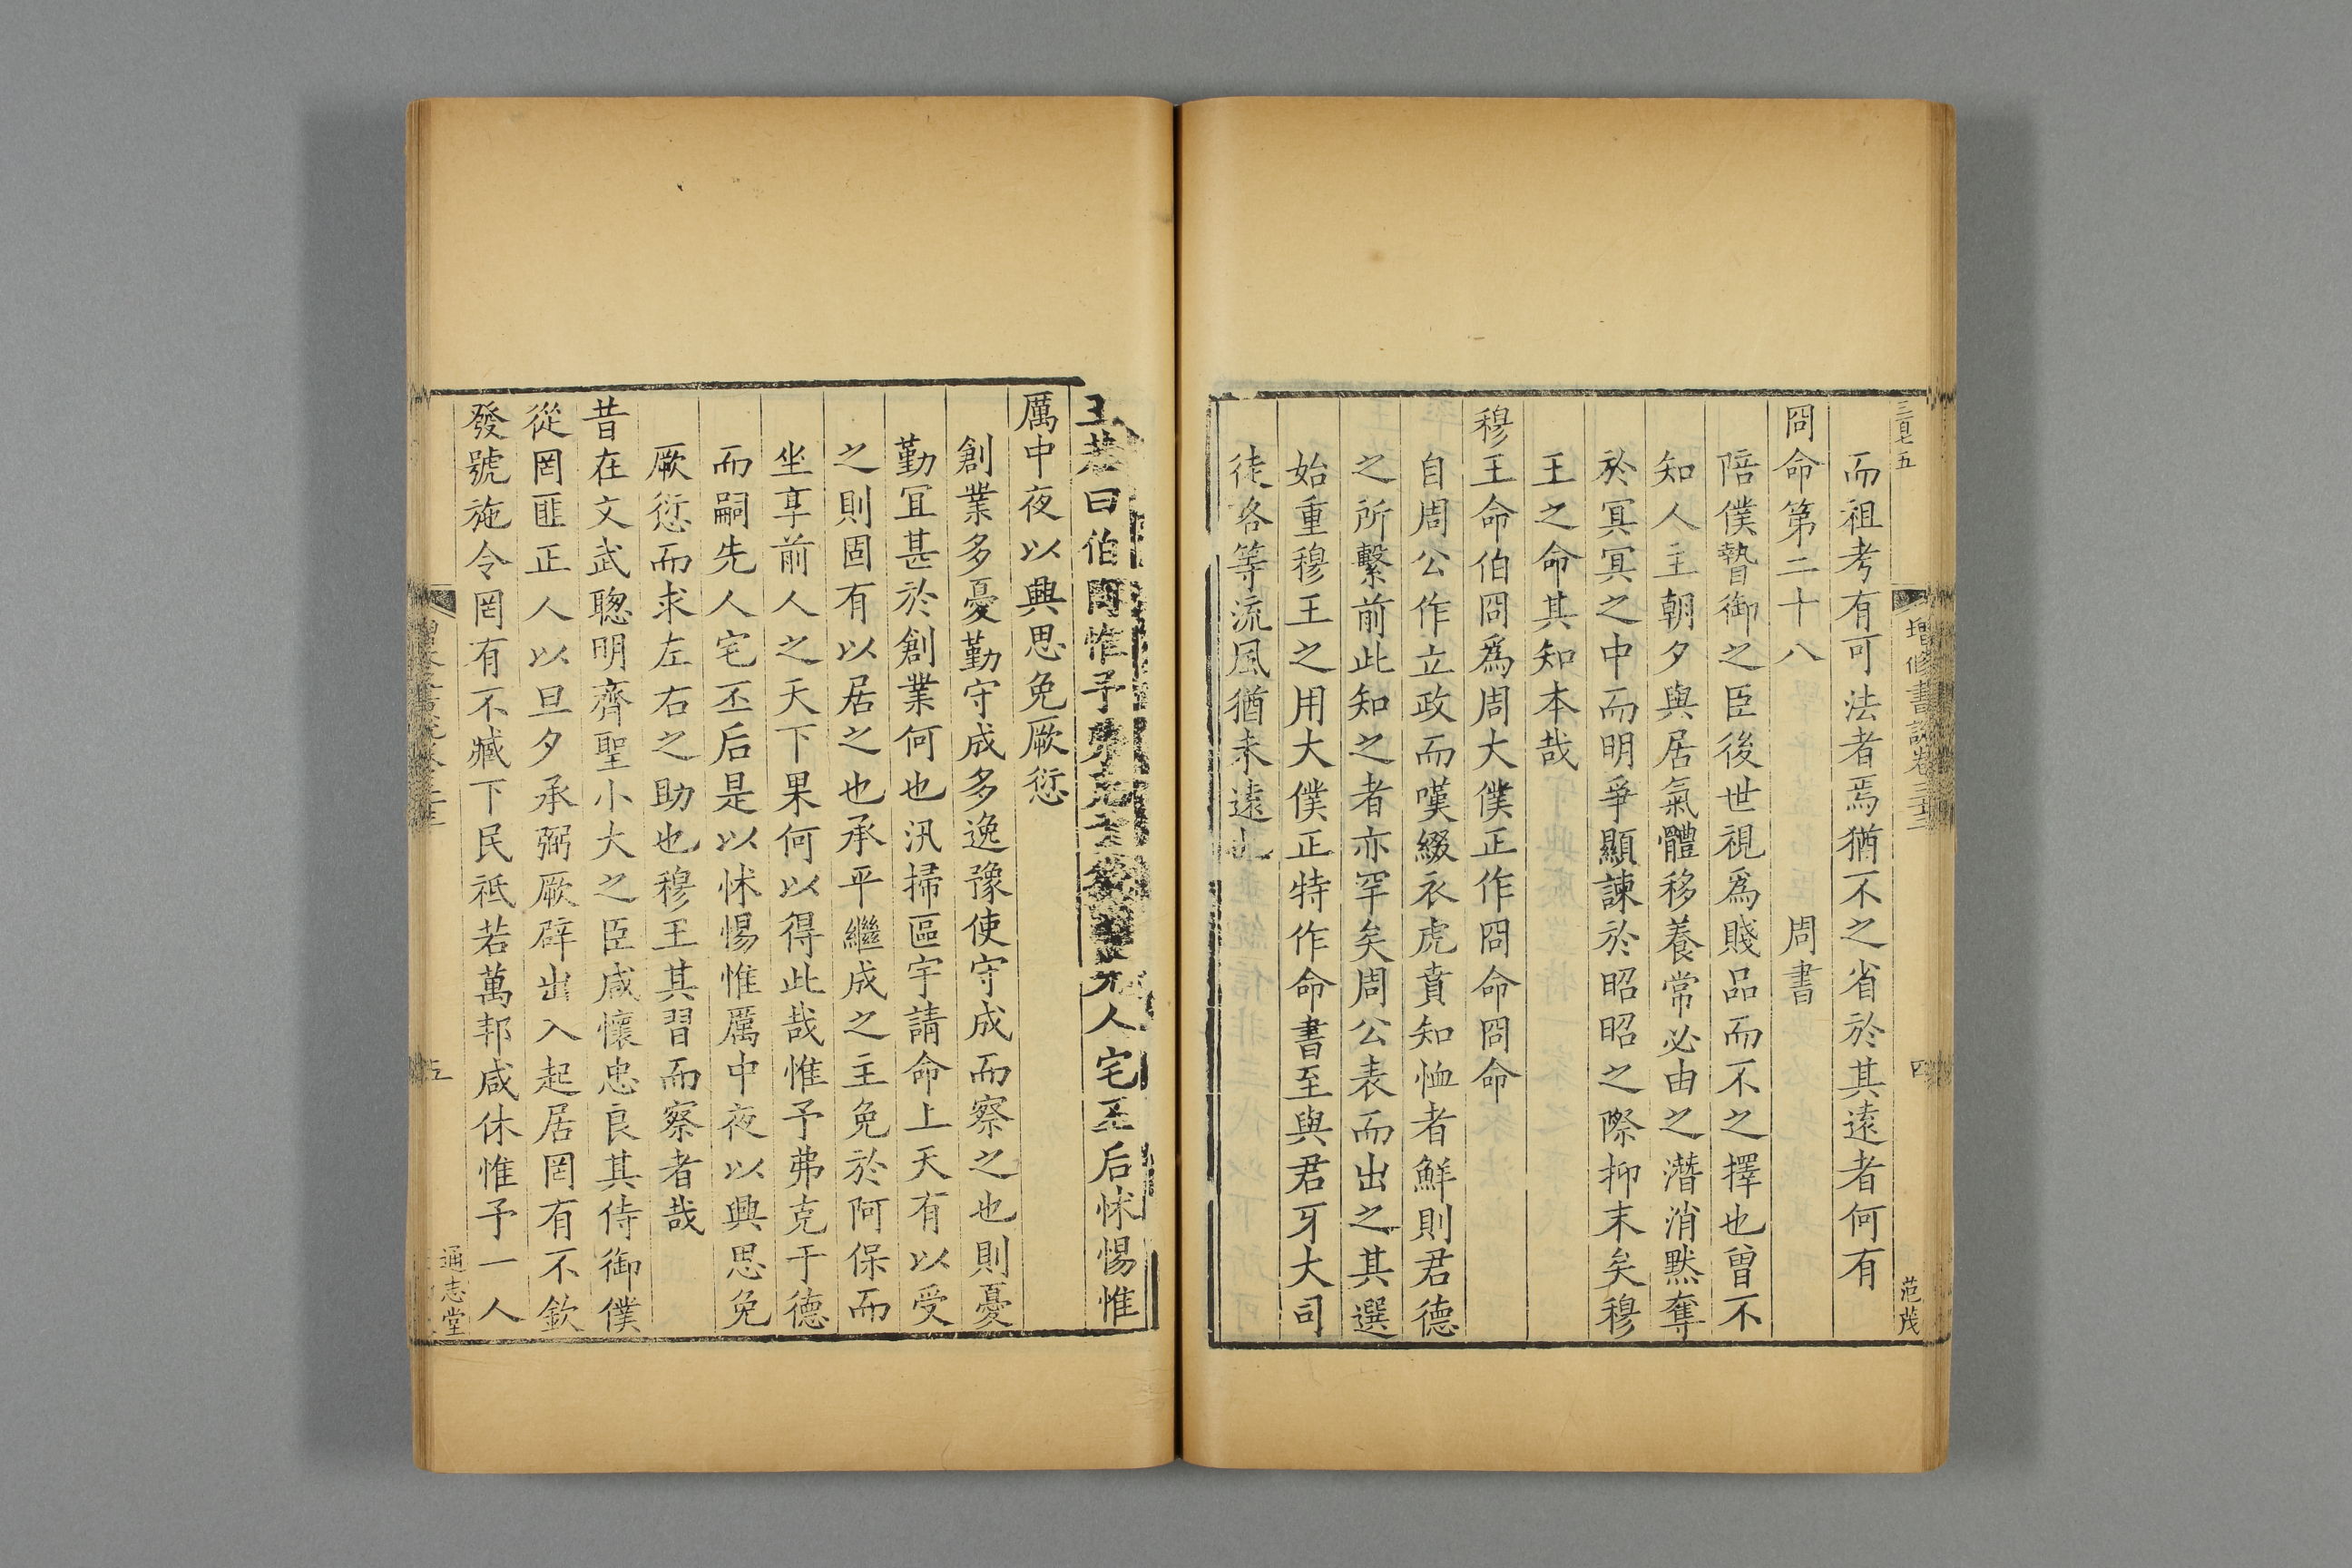 三百七五
增修書說卷三十三
四
范茂
而祖考有可法者焉猶不之省於其遠者何有
冏命第二十八 周書
陪僕暬御之臣後世視爲賤品而不之擇也曾不
知人主朝夕與居氣體移養常必由之潛消黙奪
於冥冥之中而明爭顯諫於昭昭之際抑末矣穆
王之命其知本哉
穆王命伯冏爲周大僕正作冏命冏命
自周公作立政而嘆綴衣虎賁知恤者鮮則君德
之所繫前此知之者亦罕矣周公表而出之其選
始重穆王之用大僕正特作命書至與君牙大司
徒各等流風猶未遠也
王若曰伯冏惟予弗克于德 人宅丕后怵惕惟
厲中夜以興思免厥愆
創業多憂勤守成多逸豫使守成而察之也則憂
勤宜甚於創業何也汛掃區宇請命上天有以受
之則固有以居之也承平繼成之主免於阿保而
坐享前人之天下果何以得此哉惟予弗克于德
而嗣先人宅丕后是以怵惕惟厲中夜以興思免
厥愆而求左右之助也穆王其習而察者哉
昔在文武聰明齊聖小大之臣咸懷忠良其侍御僕
從罔匪正人以旦夕承弼厥辟出入起居罔有不欽
發號施令罔有不臧下民祗若萬邦咸休惟予一人
五
通志堂